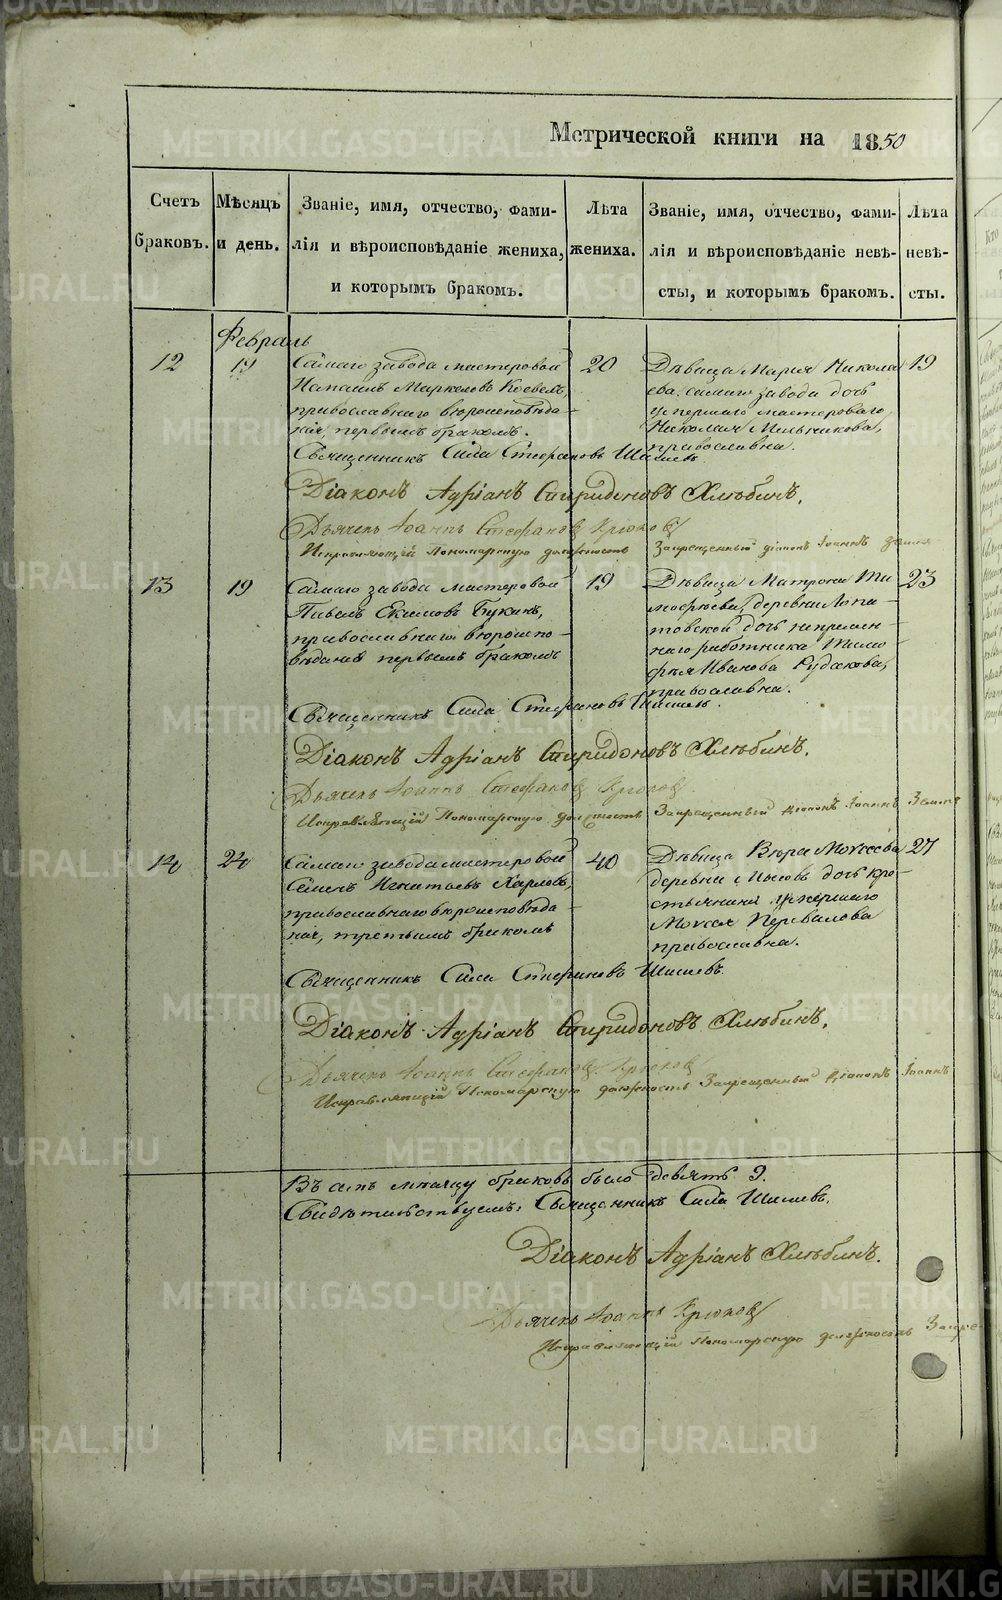 Метрической книги на 1850
Счетъ браковъ.
Мѣсяцъ и день.
Званіе, имя, отчество, фами-
лія и вѣроисповѣданіе жениха,
и которымъ бракомъ.
Лѣта жениха.
Званіе, имя, отчество, фами-
лія и вѣроисповѣданіе невѣ-
сты, и которымъ бракомъ.
Лѣта невѣ-
сты.
Февраль
12
19
Самаго завода мастеровой
Маркеловъ
православнаго вѣроисповѣда-
нія, первымъ бракомъ.
20
Дѣвица Марія Никола
ева, самаго завода дочь
умершаго мастероваго
Николая Мельникова,
православна.
19
Священникъ Сила Стефановъ Шишевъ
Діаконъ Адріанъ Спиридоновъ Хлѣбинъ.
Дьячекъ Іоаннъ Стефановъ Крюковъ
Исправляющій Пономарскую должность Запрещенный діаконъ Іоаннъ
13
19
Самаго завода мастеровой
Павелъ Екимовъ Букинъ,
православнаго вѣроиспо-
вѣданія первымъ бракомъ
19
Дѣвица Матрона Ти
мофѣева, деревни Лопа-
товской дочь непремен-
наго работника Тимо
фѣя Иванова Рудакова,
православна.
23
Священникъ Сила Стефановъ Шишевъ.
Діаконъ Адріанъ Спиридоновъ Хлѣбинъ.
Дьячекъ Іоаннъ Стефановъ Крюковъ
Исправляющій Пономарскую должность Запрещенный діаконъ Іоаннъ
14
24
Самаго завода мастеровой
Семенъ Игнатьевъ Карловъ,
православнаго вѣроисповѣда
нія, третьимъ бракомъ
40
Дѣвица Вѣра Мокеева
деревни дочь кре-
стьянина умершаго
Мокея Перевалова
православна.
27
Священникъ Сила Стефановъ Шишевъ.
Діаконъ Адріанъ Спиридоновъ Хлѣбинъ.
Дьячекъ Іоаннъ Стефановъ Крюковъ
Исправляющій Пономарскую должность Запрещенный діаконъ Іоаннъ
Въ семъ мѣсяцу браковъ было девять 9.
Свидѣтельствуемъ: Священникъ Сила Шишевъ.
Діаконъ Адріанъ Хлѣбинъ.
Дьячекъ Іоаннъ Крюковъ
Исправляющій Пономарскую должность
METRIKI.GASO-URAL.RU